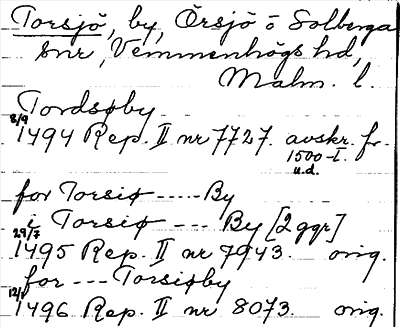 Torsjö, by, Örsjö o Solberga
snr, Vemmenhögs hd,
Malm. l.
Tordsøby
8/9 1494 Rep. II nr 7727. avskr. fr.
1500-t.
u.d.
for Torsiø ----- By
i Torsiø --- By [2 ggr]
29/7 1495 Rep. II nr 7943. orig.
for --- Torsiøby
1496 Rep. II nr 8073. orig.